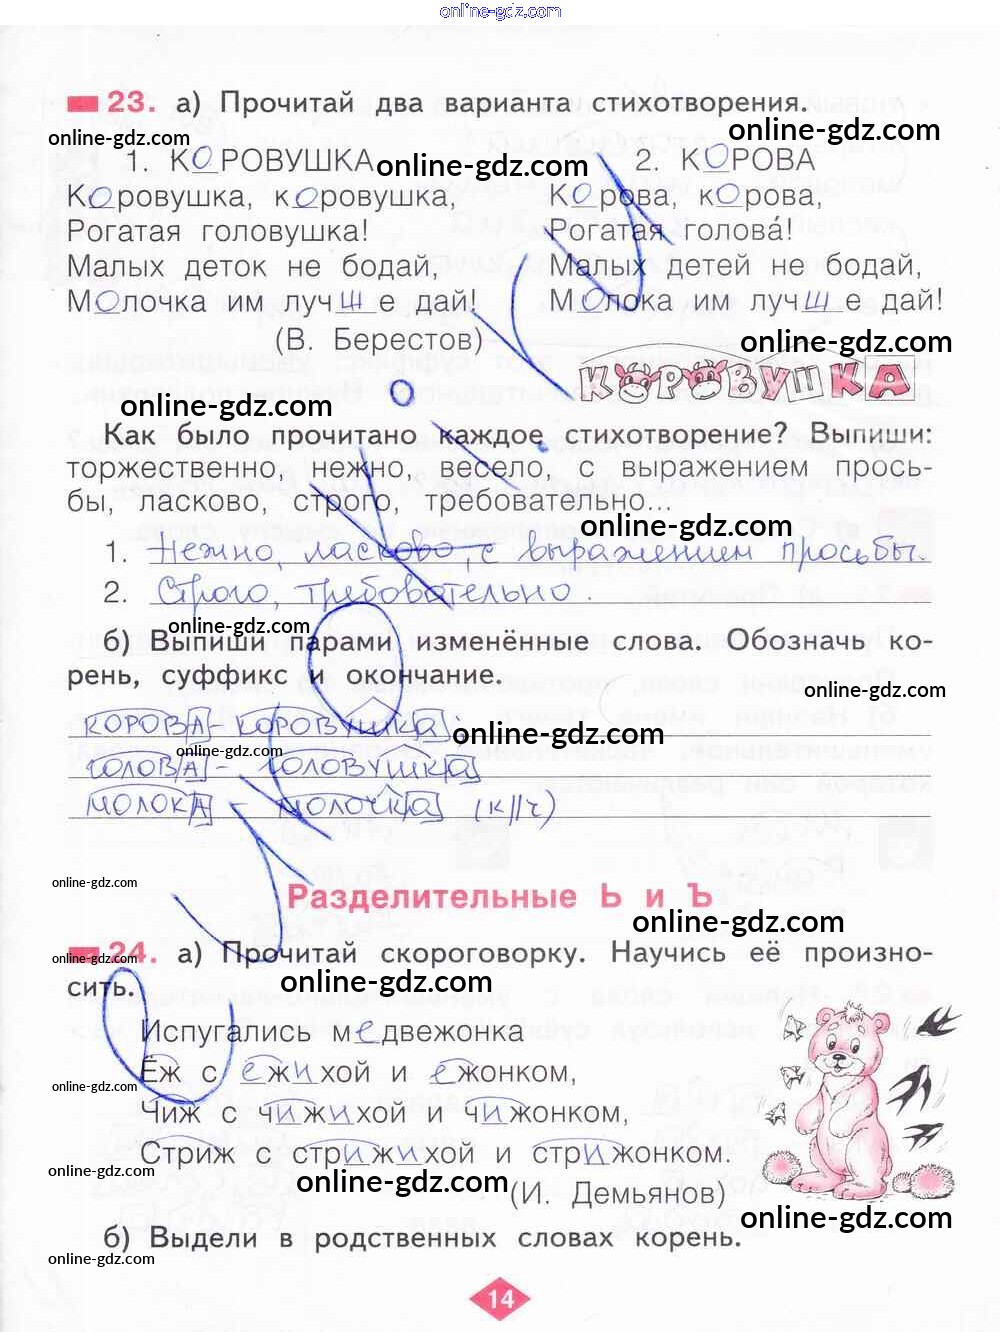 online-gdz.com
23. а) Прочитай два варианта стихотворения.
online-gdz.com
online-gdz.com
1. КОРОВУШКА
online-gdz.com
2. КОРОВА
Коровушка, коровушка,
Корова, корова,
Рогатая головушка!
Рогатая голова́!
Малых деток не бодай,
Малых детей не бодай,
Молочка им лучш е дай!
Молока им лучш е дай!
(В. Берестов)
online-gdz.com
КОРОВУШКА
online-gdz.com
Как было прочитано каждое стихотворение? Выпиши:
торжественно нежно, весело, с выражением прось-
бы, ласково, строго, требовательно...
online-gdz.com
1. Нежно, ласково, с выражением просьбы.
2. Строго, требовательно.
online-gdz.com
б) Выпиши парами изменённые слова. Обозначь ко-
рень, суффикс и окончание.
online-gdz.com
корова - коровушка;
online-gdz.com
online-gdz.com
голова - головушка
молока - молочка (к//ч)
online-gdz.com
Разделительные Ь и Ъ
online-gdz.com
24. а) Прочитай скороговорку. Научись её произно-
online-gdz.com
сить.
online-gdz.com
Испугались медвежонка
Ёж с ежихой и ежонком,
online-gdz.com
Чиж с чижихой и чижонком,
Стриж с стрижихой и стрижонком.
online-gdz.com
online-gdz.com
(И. Демьянов)
online-gdz.com
б) Выдели в родственных словах корень.
online-gdz.com
14